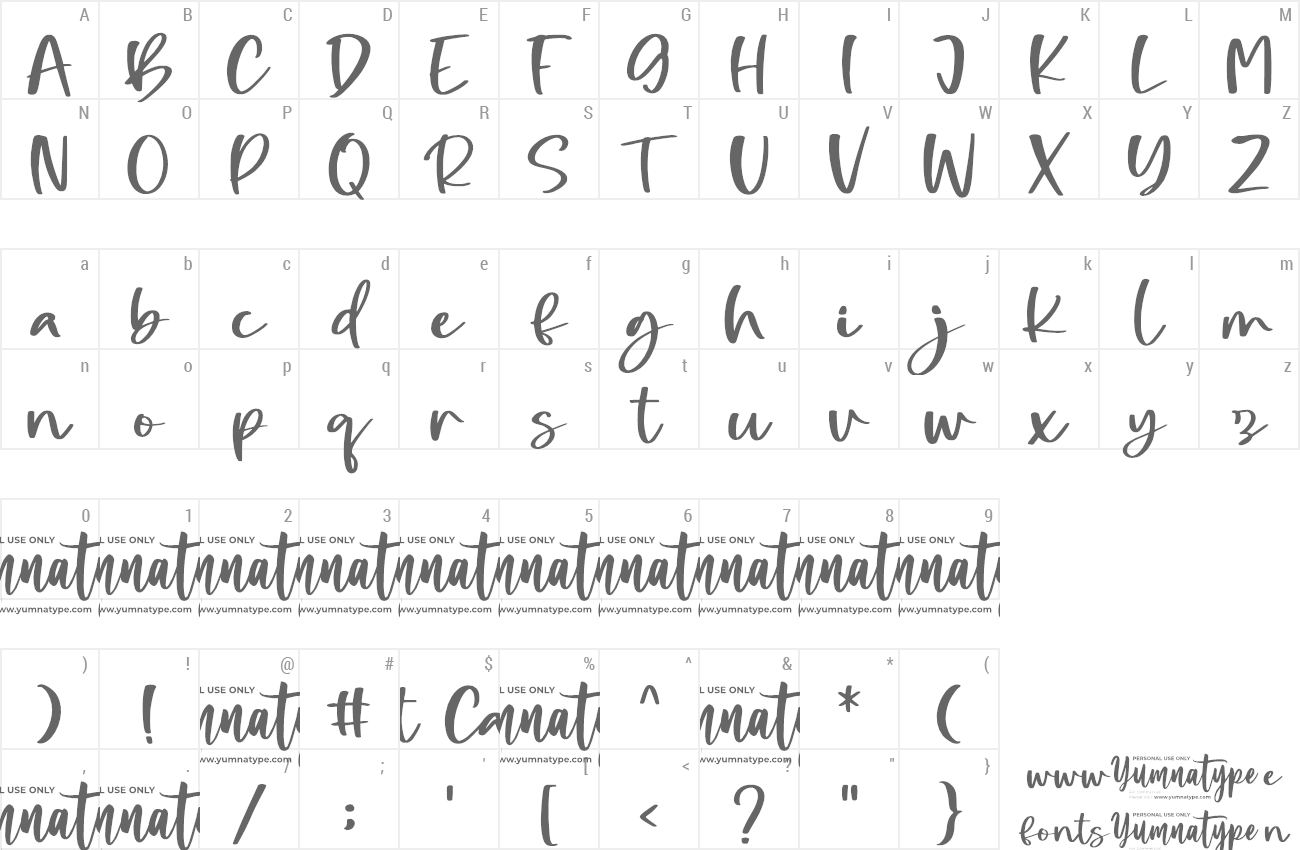 A B C D E F G H I J K L M
A B C D E F G H I J K L M
N O P Q R S T U V W X Y Z
N O P Q R S T U V W X Y Z
a b c d e f g h i j k l m
a b c d e f g h i j k l m
n o p q r s t u v w x y z
n o p q r s t u v w x y z
0 1 2 3 4 5 6 7 8 9
L USE ONLY L USE ONLY L USE ONLY L USE ONLY L USE ONLY L USE ONLY L USE ONLY L USE ONLY L USE ONLY L USE ONLY
nnat nnat nnat nnat nnat nnat nnat nnat nnat nnat
ww.yumnatype.com ww.yumnatype.com ww.yumnatype.com ww.yumnatype.com ww.yumnatype.com ww.yumnatype.com ww.yumnatype.com ww.yumnatype.com ww.yumnatype.com ww.yumnatype.com
) ! @ # $ % ^ & * (
L USE ONLY L USE ONLY L USE ONLY
) ! nnat # t Ca nnat ^ nnat * (
ww.yumnatype.com ww.yumnatype.com ww.yumnatype.com
, . / ; ' [ < ? " }
L USE ONLY L USE ONLY
nnat nnat / ; ' [ < ? " }
PERSONAL USE ONLY
www Yumnatype e
www.yumnatype.com
PERSONAL USE ONLY
fonts Yumnatype n